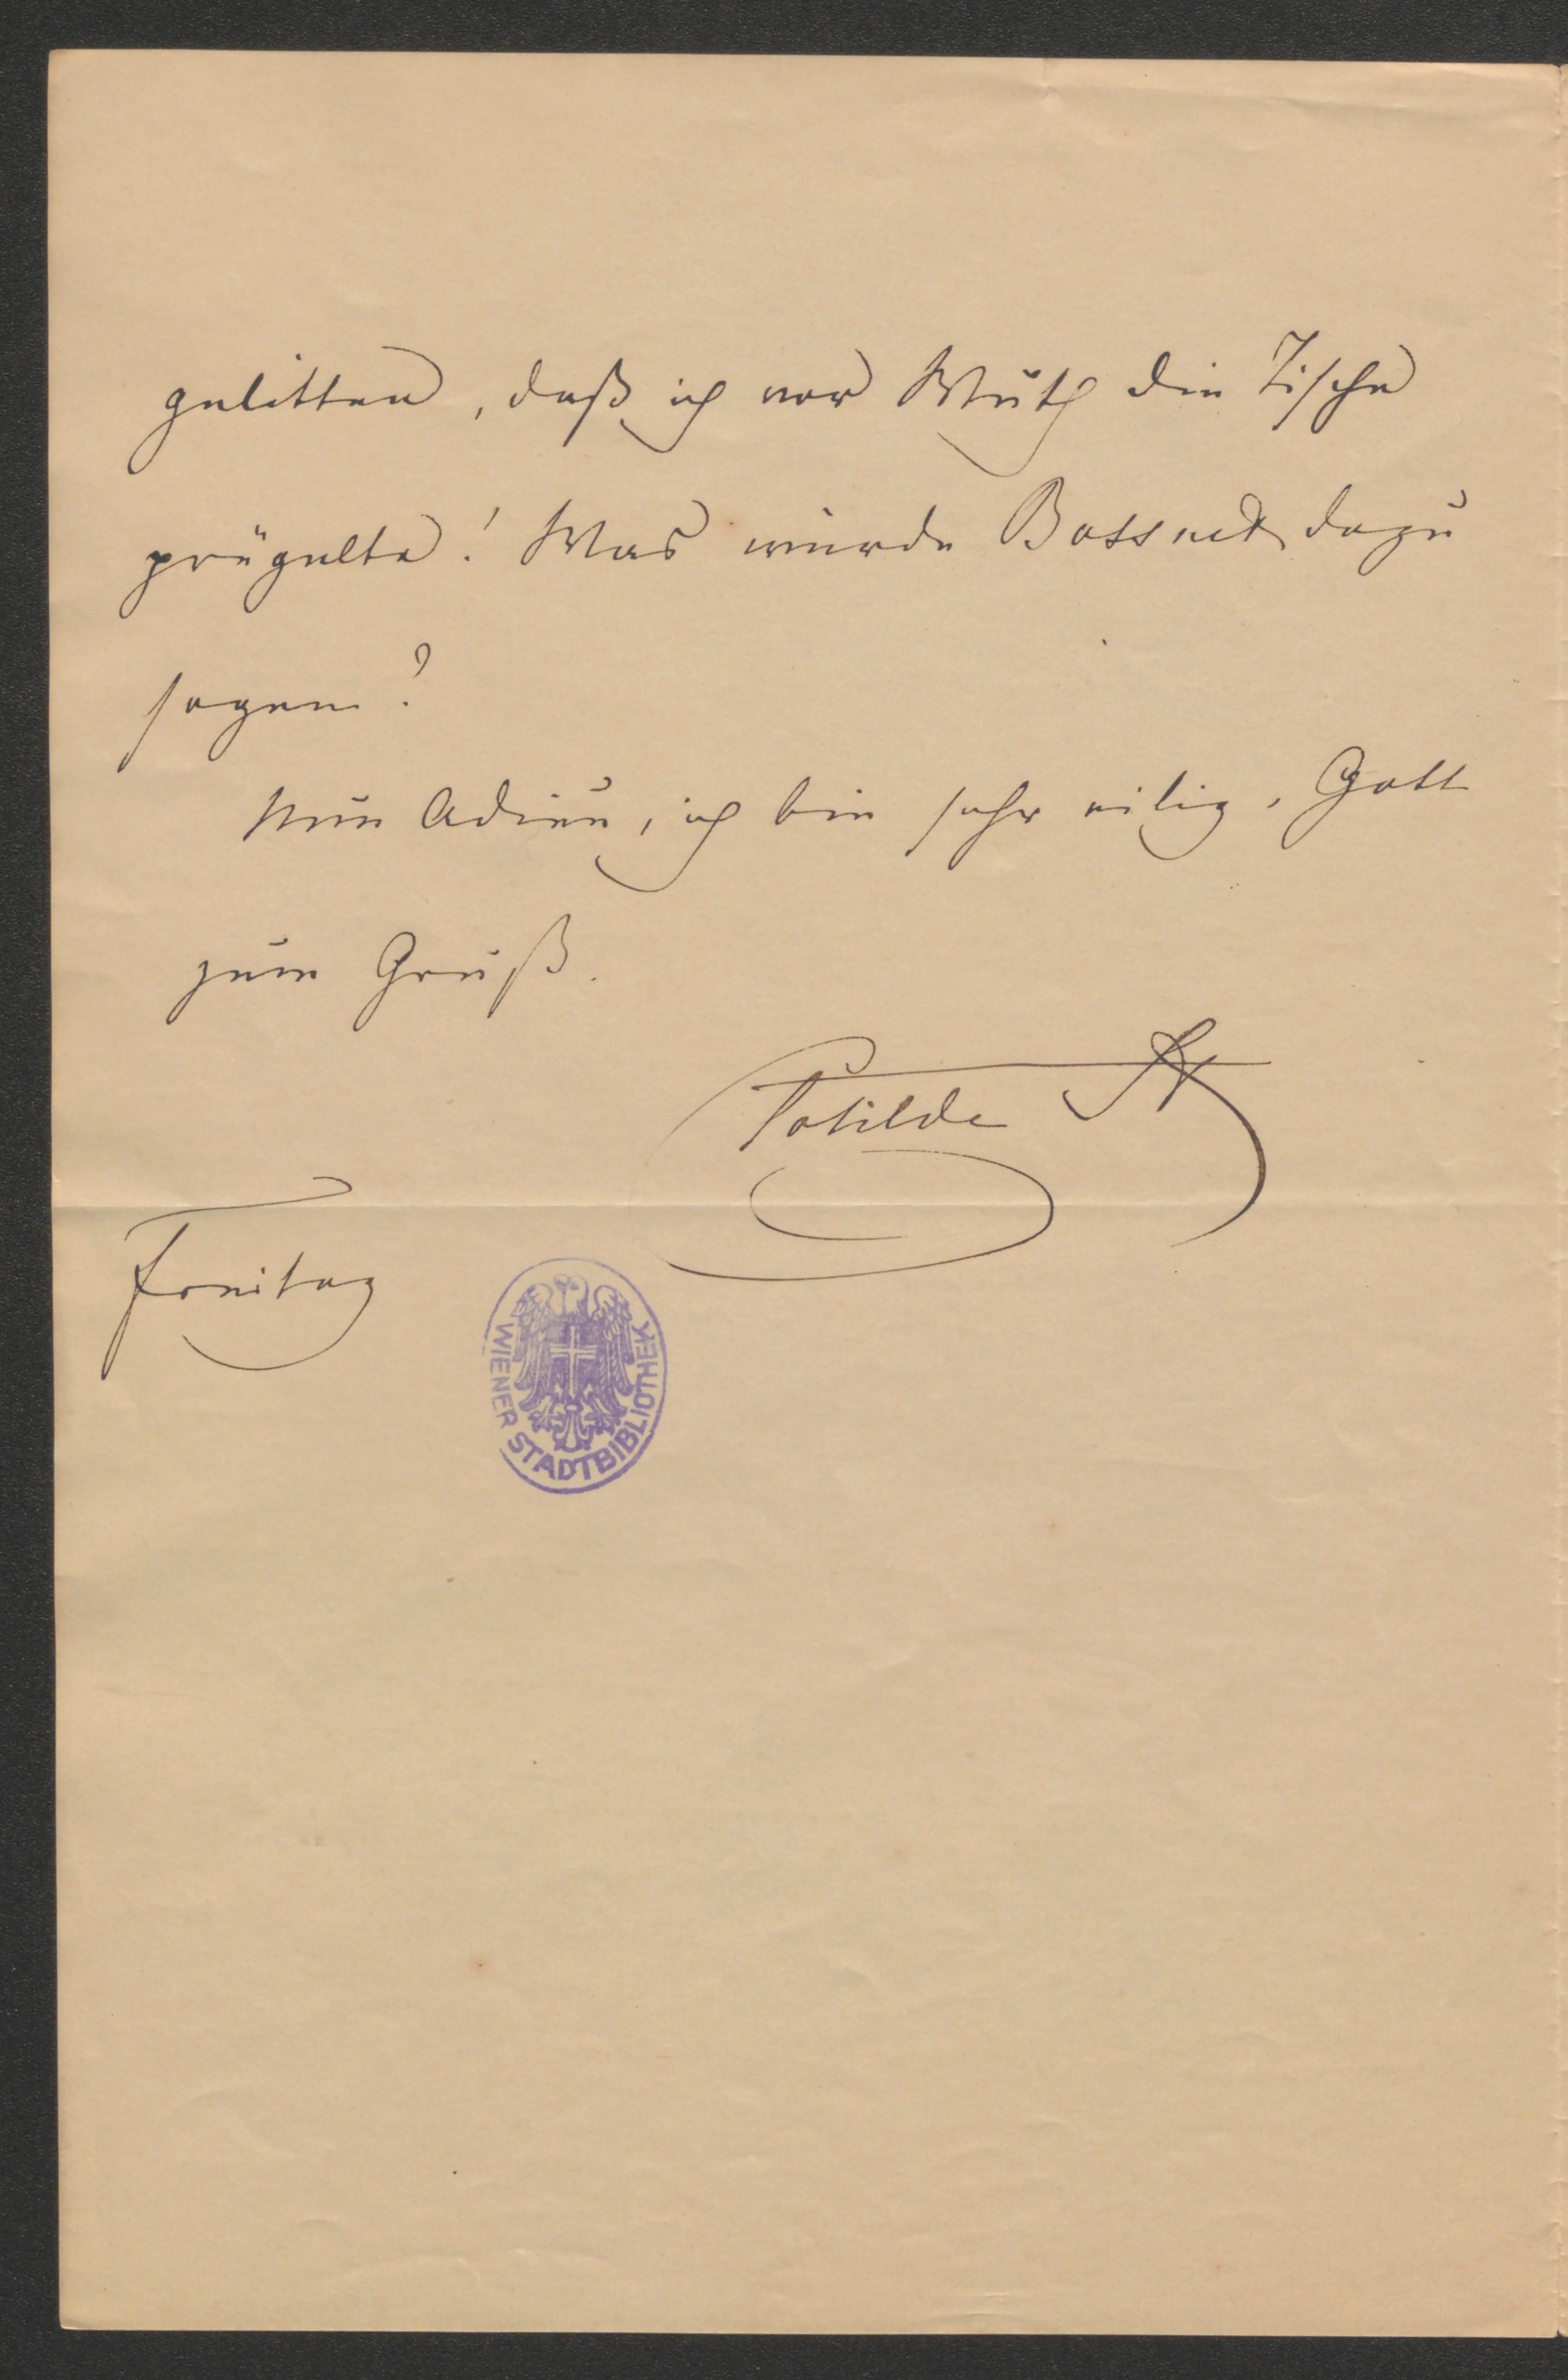 gelitten, daß ich vor Wuth die Tische
prügelte! Was würde Bossuet dazu
sagen?
Nun Adieu, ich bin sehr eilig, Gott
zum Gruß.
Freitag
WIENER STADTBIBLIOTHEK